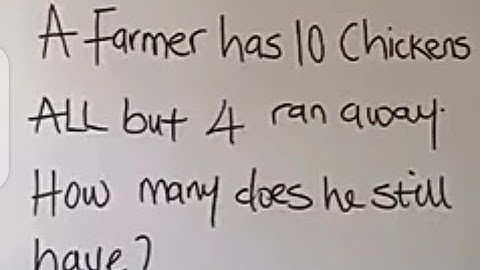 A Farmer has 10 Chickens
ALL but 4 ran away.
How many does he still
have?